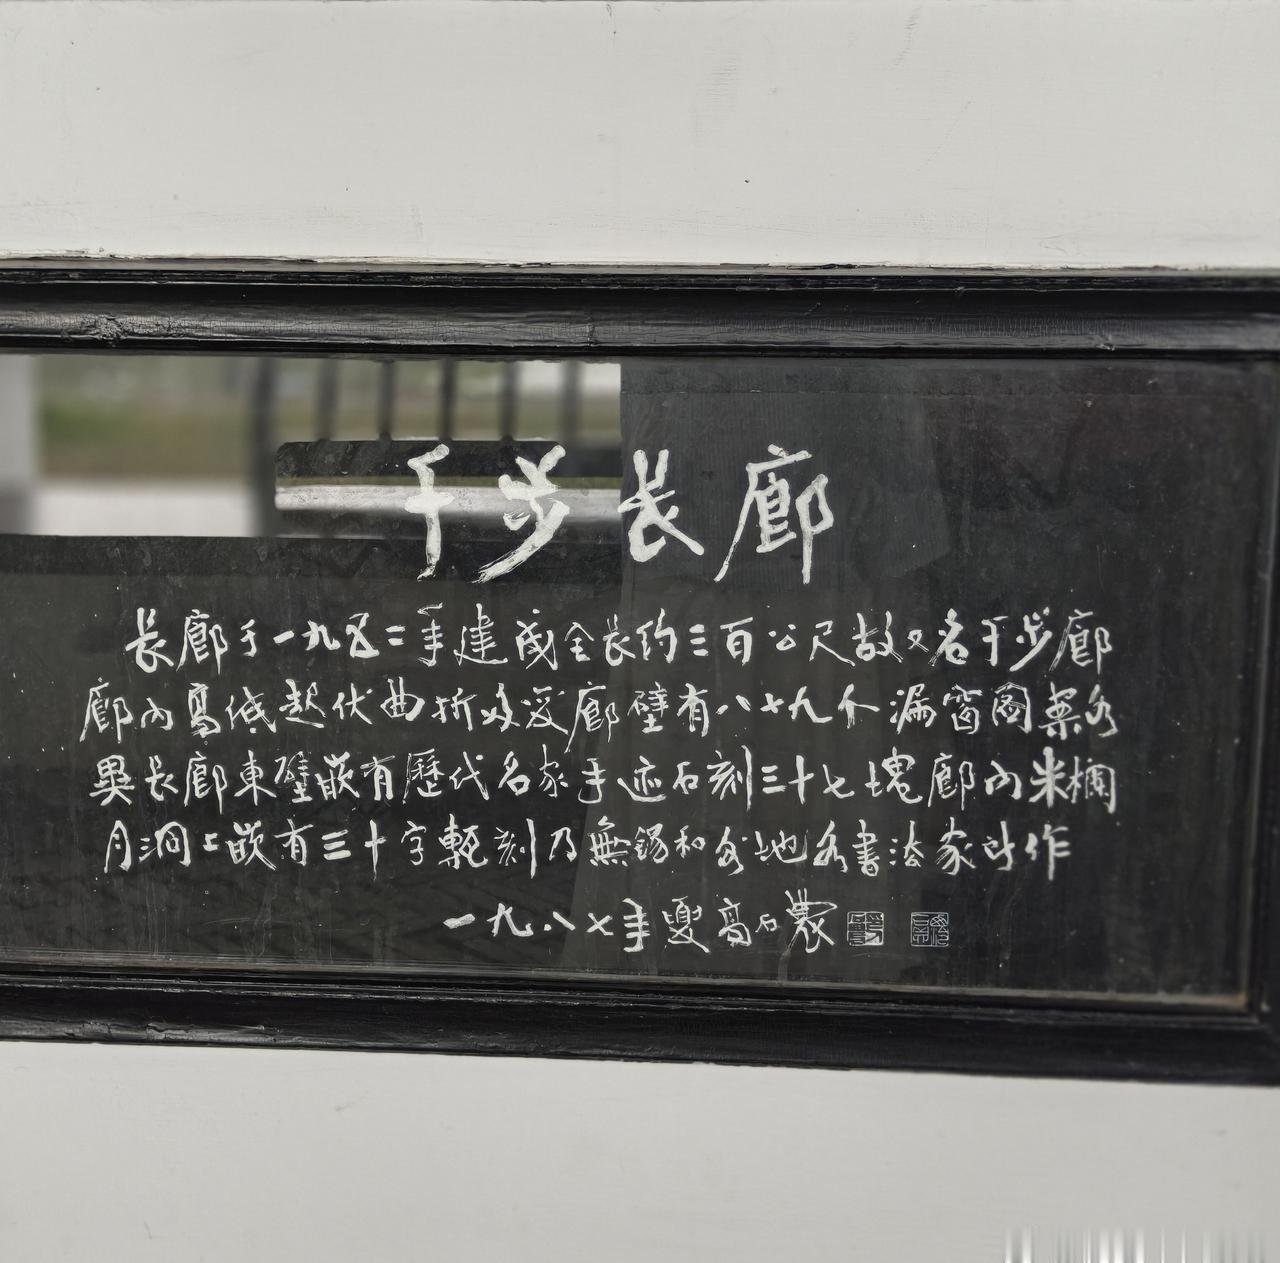 千步長廊
長廊于一九五二年建成全長約三百公尺故又名千步廊
廊内高低起伏曲折多姿廊壁有八十九个漏窗图案各
異長廊東壁嵌有歷代名家手迹石刻三十七塊廊内米襴
月洞上嵌有三十字甎刻乃無錫和各地名書法家所作
一九八七年夏高石農